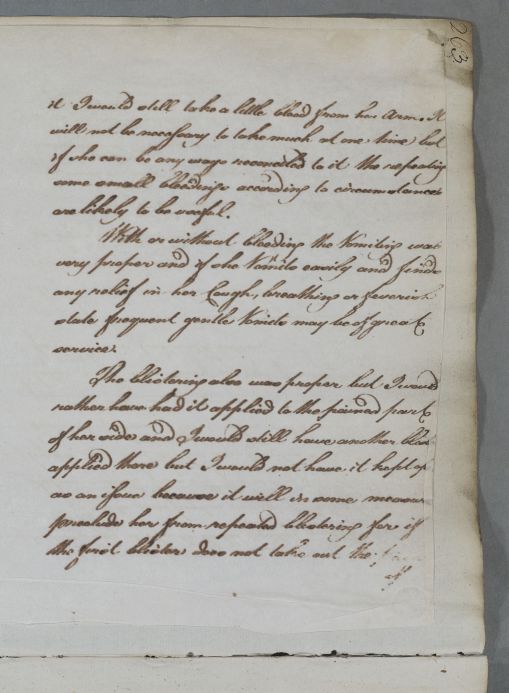 263.
it I would still take a little blood from her Arm. It
will not be necessary to take much at one time but
if she can be any ways reconciled to it the repeating
some small bleedings according to circumstances
are likely to be useful.
With or without bleeding the Vomiting was
very proper and if she Vomits easily and finds
any relief in her Cough, breathing or feverish
state frequent gentle Vomits may be of great
service.
The blistering also was proper but I would
rather have had it applied to the pained part
of her side and I would still have another
applied there but I would not have it kept
as an issue because it will in some
preclude her from repeated blistering for if
the first blister does not take out the